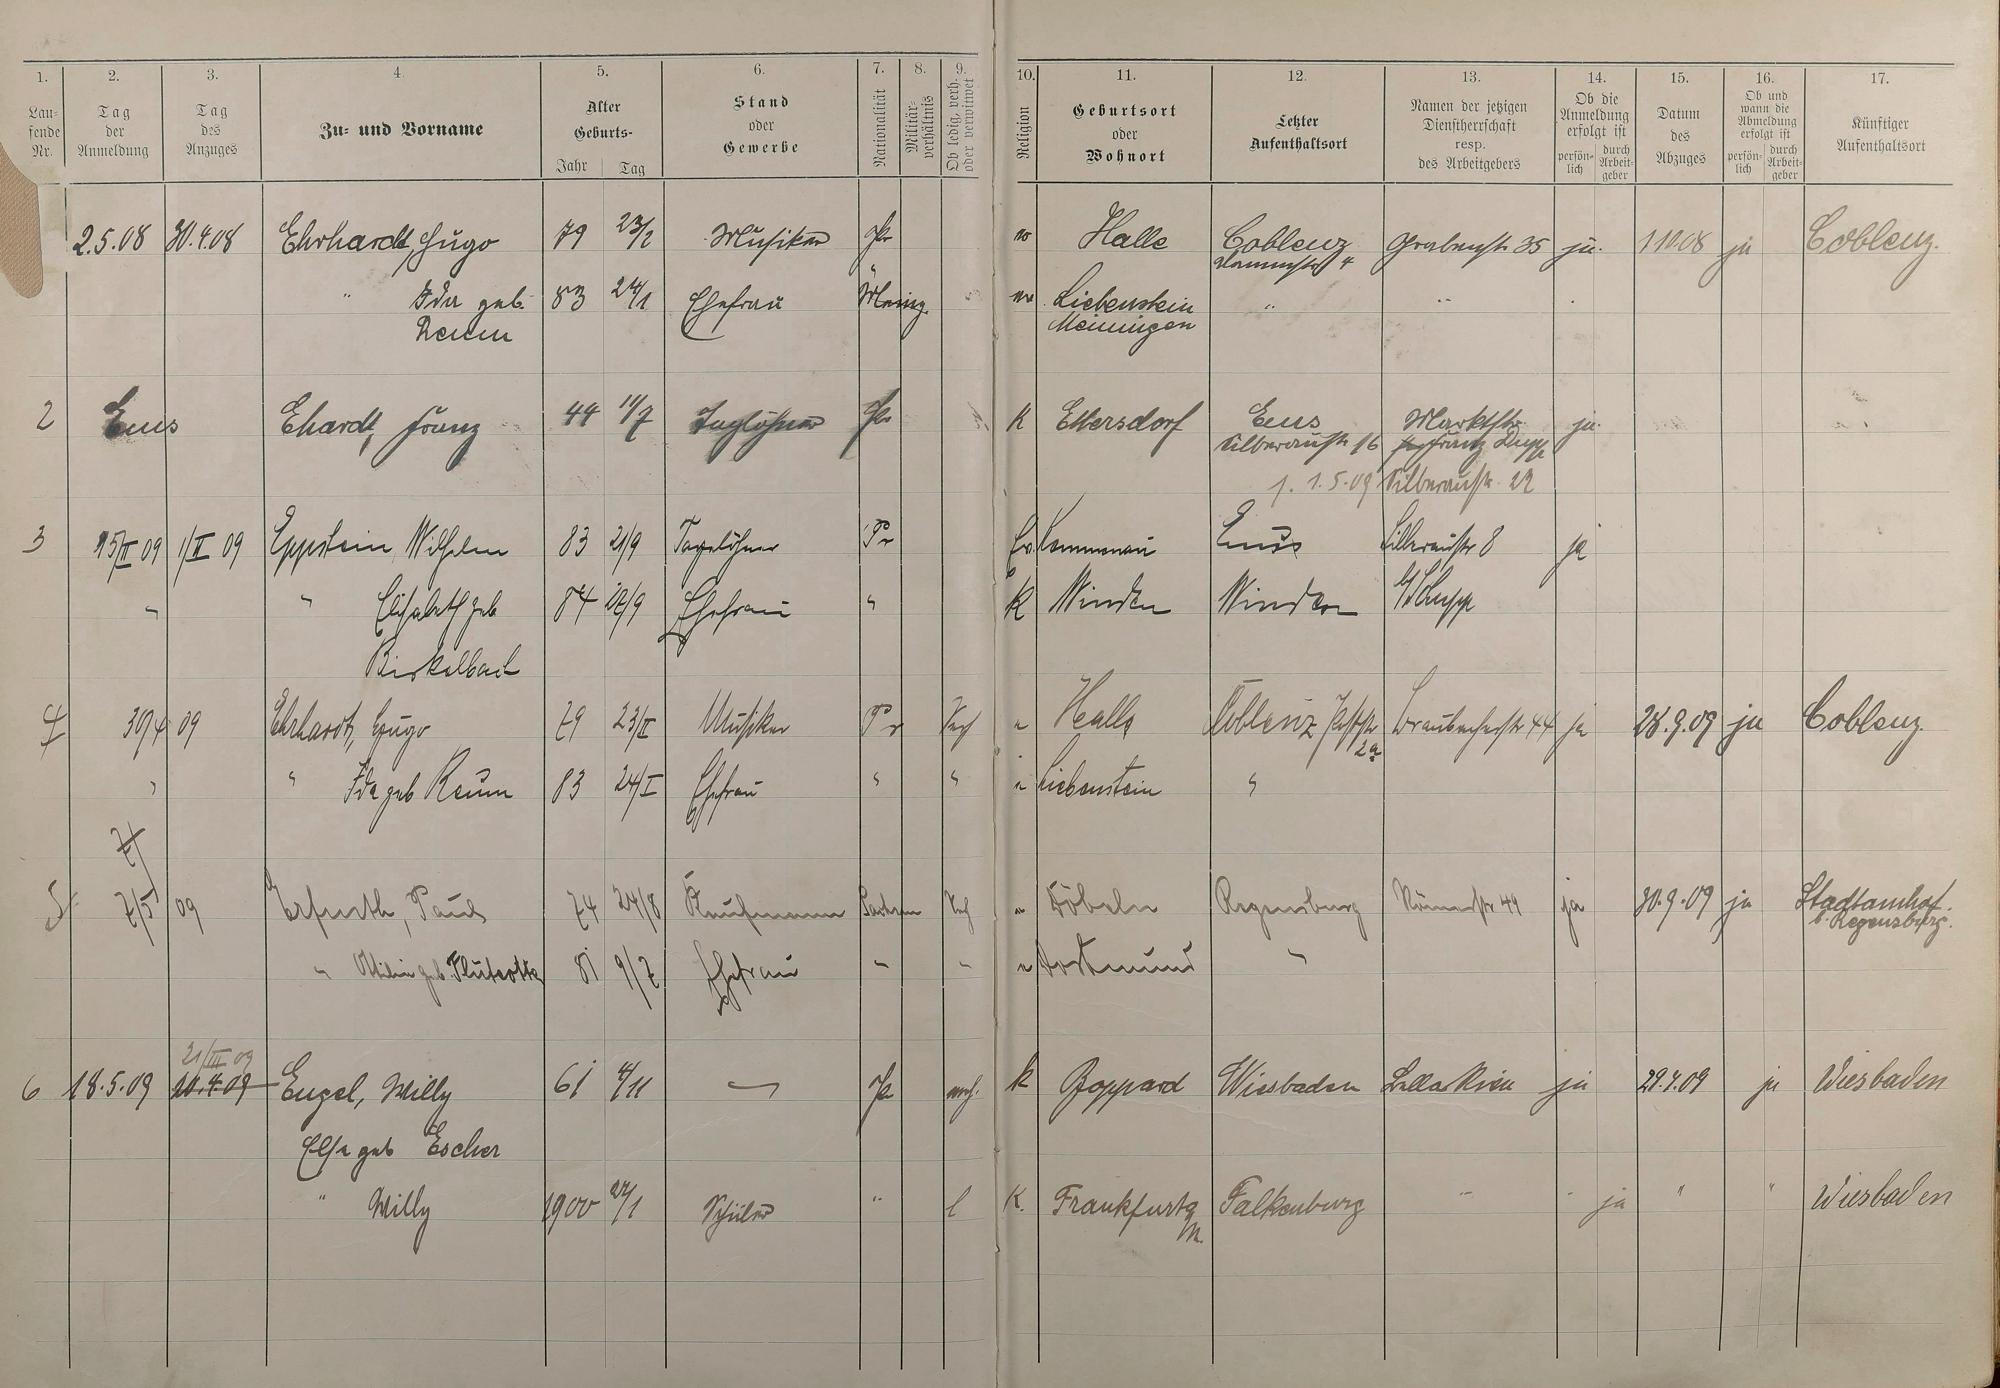 1. 2. 3. 4. 5. 6. 7. 8. 9. 10. 11. 12. 13. 14. 15. 16. 17.
Laufende Nr.
Tag der Anmeldung
Tag des Anzuges
Zu- und Vorname
Alter Geburts- Jahr Tag
Stand oder Gewerbe
Nationalität
Militär-verhältnis
Ob ledig, verh. oder verwitwet
Religion
Geburtsort oder Wohnort
Letzter Aufenthaltsort
Namen der jetzigen Dienstherrschaft resp. des Arbeitgebers
Ob die Anmeldung erfolgt ist persön-lich durch Arbeit-geber
Datum des Abzuges
Ob und wann die Abmeldung erfolgt ist persön-lich durch Arbeit-geber
Künftiger Aufenthaltsort
2.5.08 30.4.08 Ehrhardt, Hugo 79 23/2 Musiker Pr Halle Coblenz Grabenstr 35 ja. 1 10.08 ja Coblenz.
" Ida geb. 83 24/1 Ehefrau Mening. Liebenstein " "
Reum Meiningen
2 Ems Ehardt, Franz 44 11/7 Taglöhner Pr K Ettersdorf Ems Marktstr ja
Silberaustr 16 Franz
1.5.09 Silberaustr. 22
3 15/II 09 1/II 09 Eppstein Wilhelm 83 21/9 Tagelöhner Pr Ev Kemmenau Ems Silberaustr 8 ja
" " Elisabeth geb 84 26/9 Ehefrau " K Winden Winden
Birkelbach
4 30/4 09 Ehrhardt, Hugo 79 23/II Musiker Pr Verh " Halle Coblenz 44 ja 28.9.09 ja Coblenz.
2a
" " Ida geb Reum 83 24/I Ehefrau " " " Liebenstein "
7/
5 7/5 09 Erfurth, Paul 74 24/8 Kaufmann Sachsen Verh " Döbeln Regensburg Römerstr 44 ja 30.9.09 ja Stadtamhof
b. Regensburg.
" Ottilie geb. 81 9/7 Ehefrau " " " Dortmund "
21/III 09
6 18.5.09 20.4.09 Engel, Willy 61 4/11 — Pr verh. k Boppard Wiesbaden Bella Riva ja 29.4.09 ja Wiesbaden
Else geb Escher
" Willy 1900 27/1 Schüler " l K. Frankfurt a M. Falkenburg " " ja " " Wiesbaden